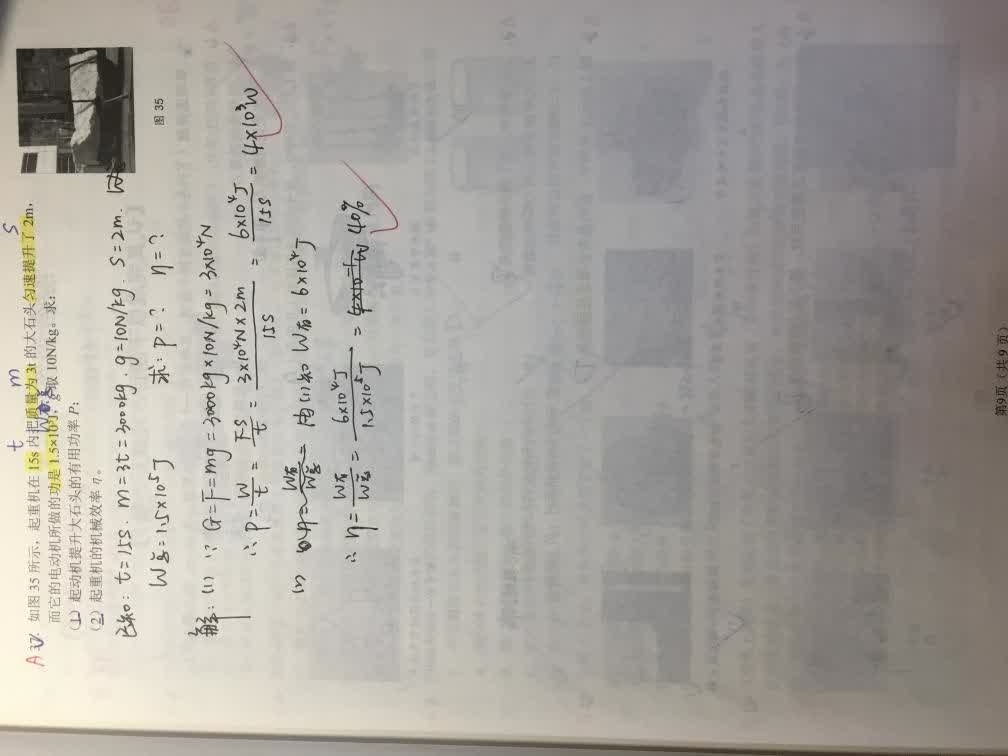 A 37. 如图 35 所示，起重机在 15s 内把质量为 3t 的大石头匀速提升了 2m，
而它的电动机所做的功是 1.5×10⁵J，g 取 10N/kg。求：
(1) 起动机提升大石头的有用功率 P；
(2) 起重机的机械效率 η。
t
m
s
W总
图 35
已知：t=15s. m=3t=3000kg. g=10N/kg. s=2m.
W总=1.5×10⁵J 求：P=? η=?
解：(1) ∵ G=F=mg=3000kg×10N/kg=3×10⁴N
∴ P=W/t=FS/t=3×10⁴N×2m/15s=6×10⁴J/15s=4×10³W
由(1)知 W有=6×10⁴J
∴ η=W有/W总=6×10⁴J/1.5×10⁵J=40%
第9页（共9页）